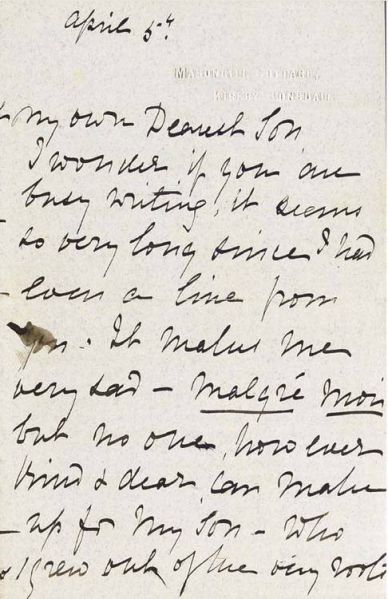 April 5th
KIRKBY LONSDALE.
My own Dearest Son
I wonder if you are
busy writing, it seems
so very long since I had
even a line from
you. It makes me
very sad – malgré moi
but no one, however
kind & dear, can make
up for my Son – who
& I grew out of the very roots